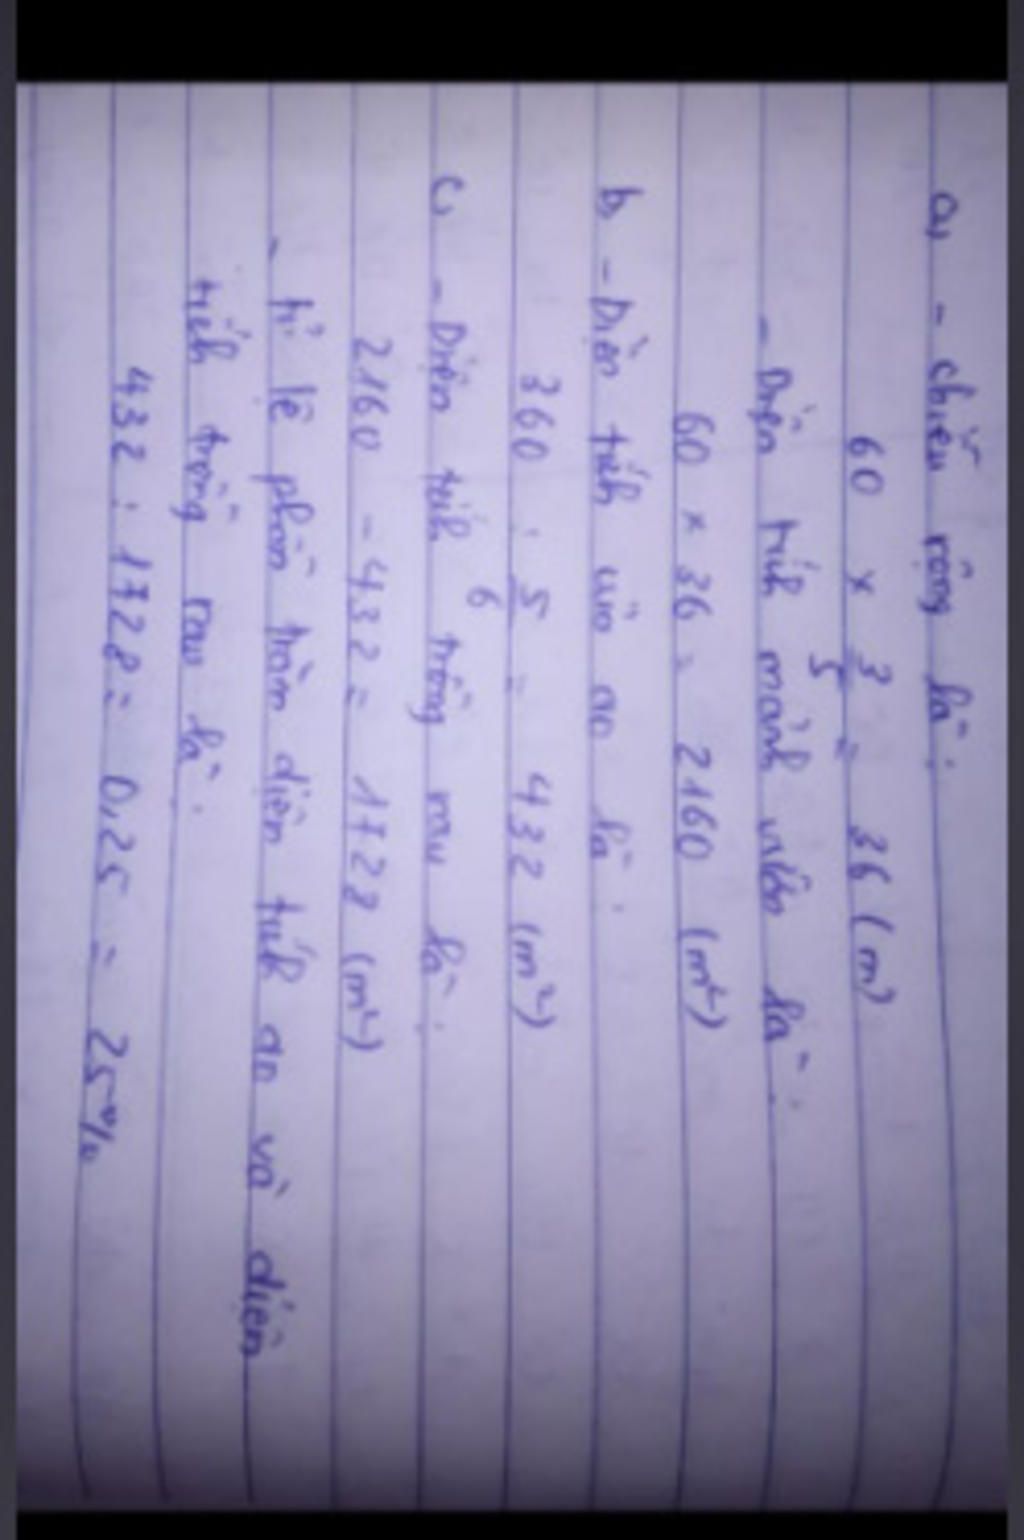 a, - chiều rộng là:
60 x 3/5 = 36 (m)
- Diện tích mảnh vườn là:
60 x 36 = 2160 (m²)
b, - Diện tích của ao là:
360 : 5/6 = 432 (m²)
c, - Diện tích trồng rau là:
2160 - 432 = 1728 (m²)
- tỉ lệ phần trăm diện tích ao và diện
tích trồng rau là:
432 : 1728 = 0,25 = 25%